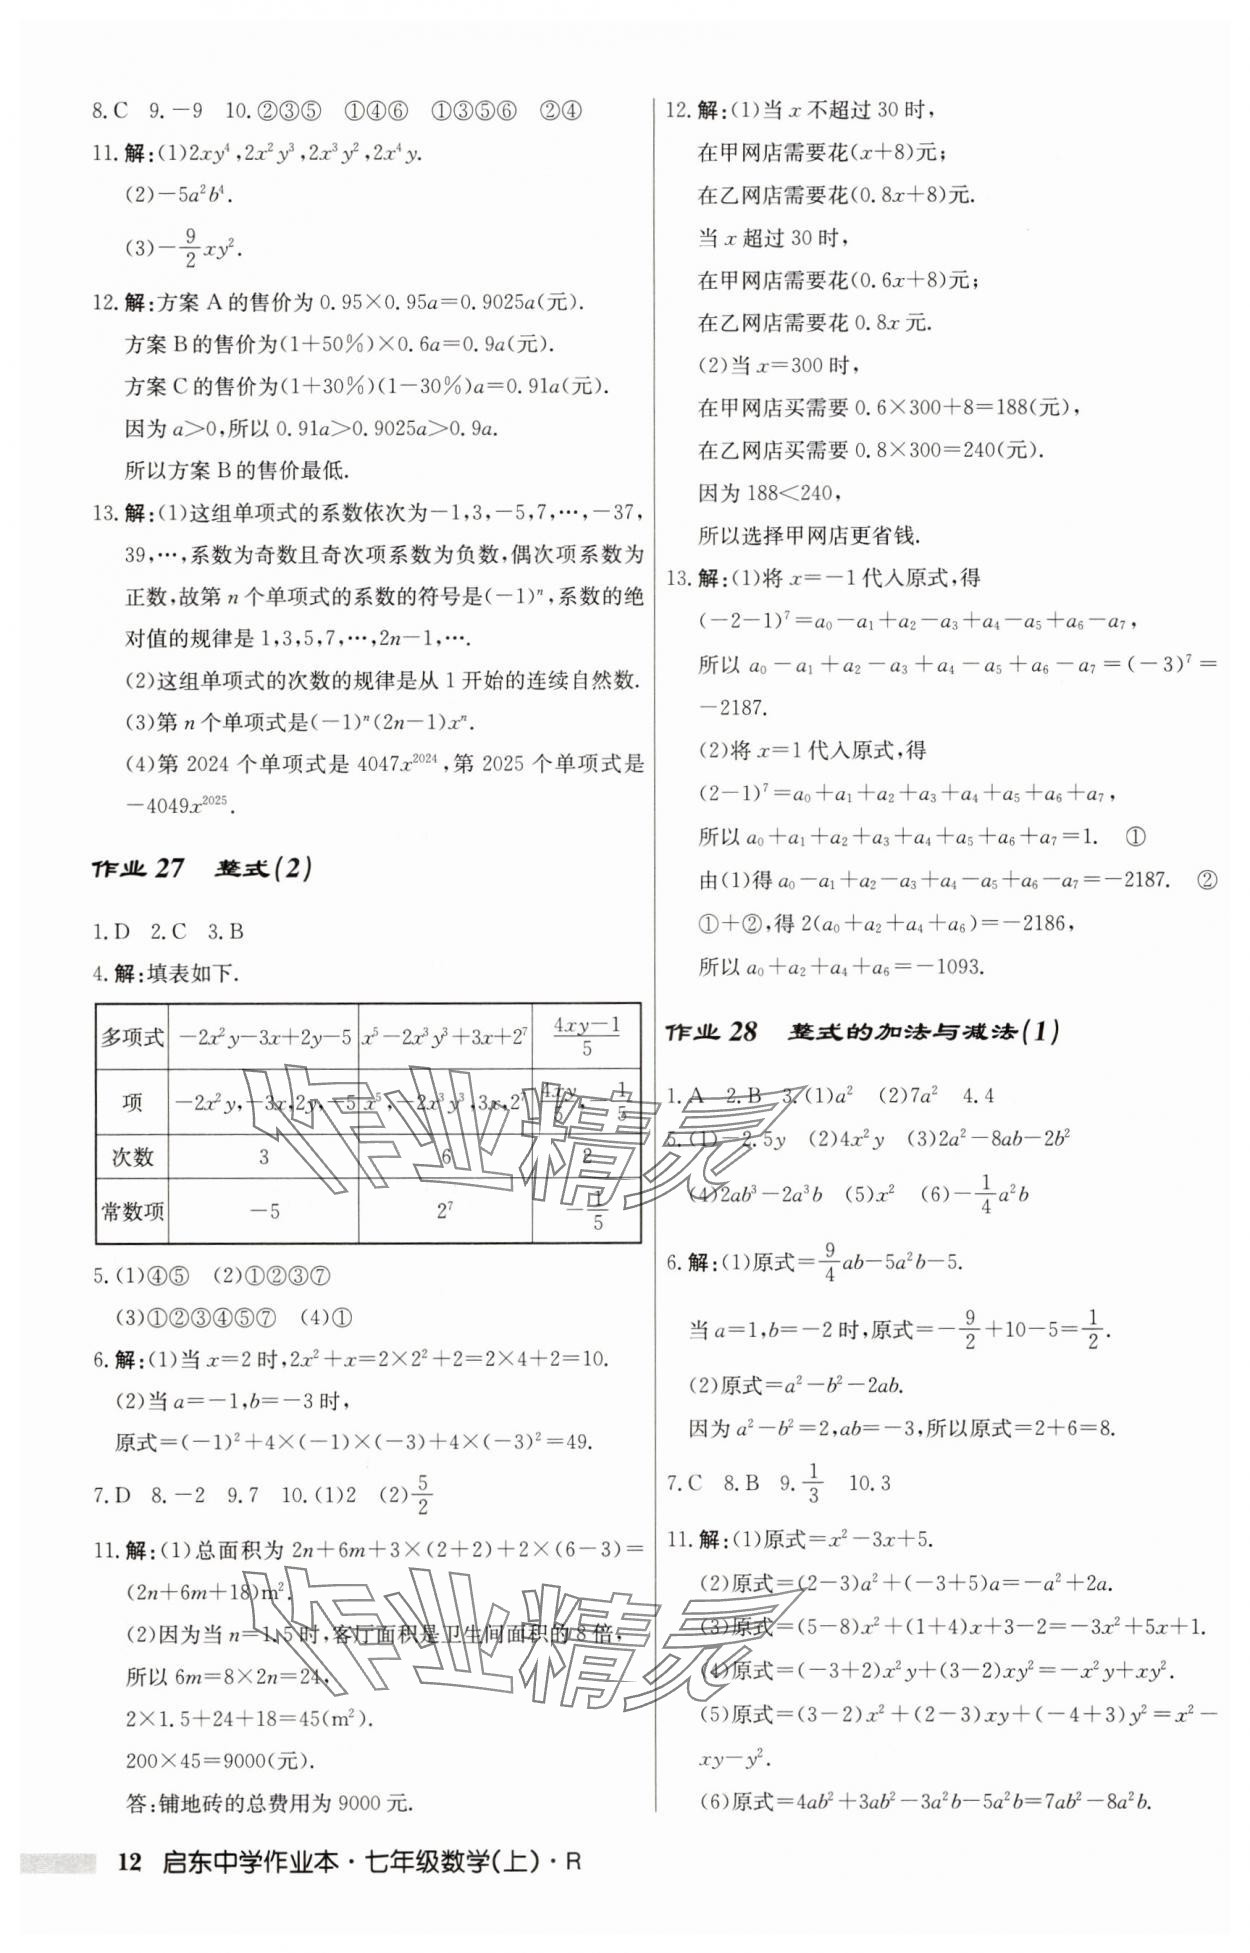 8.C　9.－9　10.②③⑤　①④⑥　①③⑤⑥　②④
11.解:(1)2xy⁴,2x²y³,2x³y²,2x⁴y.
(2)－5a²b⁴.
(3)－9/2 xy².
12.解:方案A的售价为0.95×0.95a＝0.9025a(元).
方案B的售价为(1＋50％)×0.6a＝0.9a(元).
方案C的售价为(1＋30％)(1－30％)a＝0.91a(元).
因为a＞0,所以0.91a＞0.9025a＞0.9a.
所以方案B的售价最低.
13.解:(1)这组单项式的系数依次为－1,3,－5,7,…,－37,
39,…,系数为奇数且奇次项系数为负数,偶次项系数为
正数,故第n个单项式的系数的符号是(－1)ⁿ,系数的绝
对值的规律是1,3,5,7,…,2n－1,….
(2)这组单项式的次数的规律是从1开始的连续自然数.
(3)第n个单项式是(－1)ⁿ(2n－1)xⁿ.
(4)第2024个单项式是4047x²⁰²⁴,第2025个单项式是
－4049x²⁰²⁵.
作业27　整式(2)
1.D　2.C　3.B
4.解:填表如下.
多项式　－2x²y－3x＋2y－5　x⁵－2x³y³＋3x＋2⁷　(4xy－1)/5
项　－2x²y,－3x,2y,－5　x⁵,－2x³y³,3x,2⁷　4xy/5,－1/5
次数　3　6　2
常数项　－5　2⁷　－1/5
5.(1)④⑤　(2)①②③⑦
(3)①②③④⑤⑦　(4)①
6.解:(1)当x＝2时,2x²＋x＝2×2²＋2＝2×4＋2＝10.
(2)当a＝－1,b＝－3时,
原式＝(－1)²＋4×(－1)×(－3)＋4×(－3)²＝49.
7.D　8.－2　9.7　10.(1)2　(2)5/2
11.解:(1)总面积为2n＋6m＋3×(2＋2)＋2×(6－3)＝
(2n＋6m＋18)m².
(2)因为当n＝1.5时,客厅面积是卫生间面积的8倍,
所以6m＝8×2n＝24,
2×1.5＋24＋18＝45(m²).
200×45＝9000(元).
答:铺地砖的总费用为9000元.
12.解:(1)当x不超过30时,
在甲网店需要花(x＋8)元;
在乙网店需要花(0.8x＋8)元.
当x超过30时,
在甲网店需要花(0.6x＋8)元;
在乙网店需要花0.8x元.
(2)当x＝300时,
在甲网店买需要0.6×300＋8＝188(元),
在乙网店买需要0.8×300＝240(元).
因为188＜240,
所以选择甲网店更省钱.
13.解:(1)将x＝－1代入原式,得
(－2－1)⁷＝a₀－a₁＋a₂－a₃＋a₄－a₅＋a₆－a₇,
所以a₀－a₁＋a₂－a₃＋a₄－a₅＋a₆－a₇＝(－3)⁷＝
－2187.
(2)将x＝1代入原式,得
(2－1)⁷＝a₀＋a₁＋a₂＋a₃＋a₄＋a₅＋a₆＋a₇,
所以a₀＋a₁＋a₂＋a₃＋a₄＋a₅＋a₆＋a₇＝1.　①
由(1)得a₀－a₁＋a₂－a₃＋a₄－a₅＋a₆－a₇＝－2187.　②
①＋②,得2(a₀＋a₂＋a₄＋a₆)＝－2186,
所以a₀＋a₂＋a₄＋a₆＝－1093.
作业28　整式的加法与减法(1)
1.A　2.B　3.(1)a²　(2)7a²　4.4
5.(1)－2.5y　(2)4x²y　(3)2a²－8ab－2b²
(4)2ab³－2a³b　(5)x²　(6)－1/4 a²b
6.解:(1)原式＝9/4 ab－5a²b－5.
当a＝1,b＝－2时,原式＝－9/2＋10－5＝1/2.
(2)原式＝a²－b²－2ab.
因为a²－b²＝2,ab＝－3,所以原式＝2＋6＝8.
7.C　8.B　9.1/3　10.3
11.解:(1)原式＝x²－3x＋5.
(2)原式＝(2－3)a²＋(－3＋5)a＝－a²＋2a.
(3)原式＝(5－8)x²＋(1＋4)x＋3－2＝－3x²＋5x＋1.
(4)原式＝(－3＋2)x²y＋(3－2)xy²＝－x²y＋xy².
(5)原式＝(3－2)x²＋(2－3)xy＋(－4＋3)y²＝x²－
xy－y².
(6)原式＝4ab²＋3ab²－3a²b－5a²b＝7ab²－8a²b.
12　启东中学作业本·七年级数学(上)·R
作业精灵
作业精灵